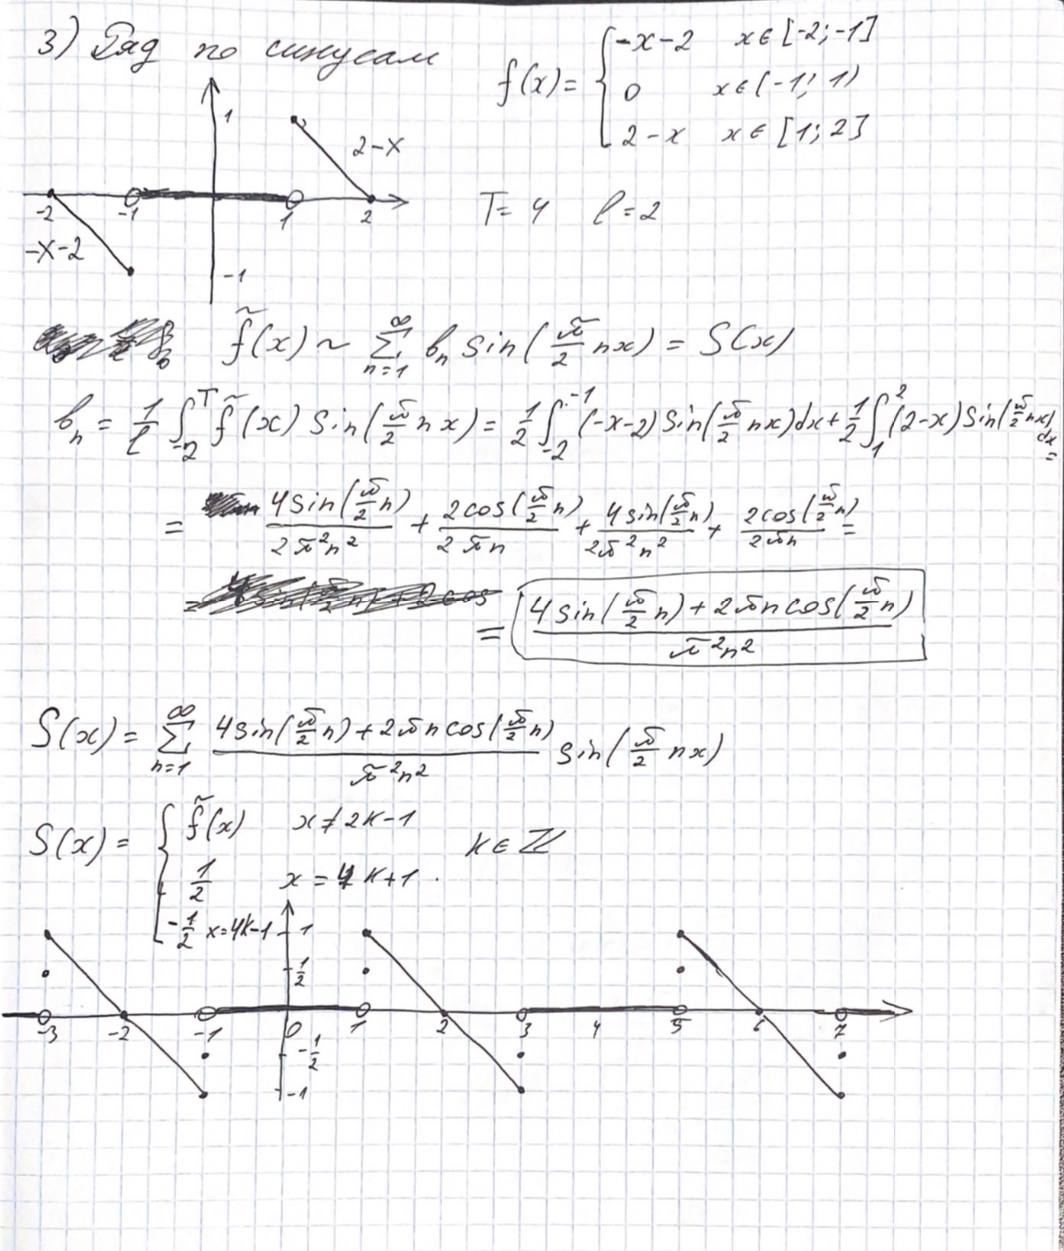 3) Ряд по синусам
f(x) = { -x-2 x∈[-2;-1]
0 x∈(-1; 1)
2-x x∈[1; 2]
1
2-x
-2 -1 1 2
-x-2
-1
T=4 l=2
f̃(x) ~ ∑_{n=1}^{∞} bₙ sin(π/2 nx) = S(x)
bₙ = 1/l ∫_{-2}^{T} f̃(x) sin(π/2 nx) = 1/2 ∫_{-2}^{-1} (-x-2) sin(π/2 nx)dx + 1/2 ∫_{1}^{2} (2-x) sin(π/2 nx) dx =
= 4sin(π/2 n)/(2π²n²) + 2cos(π/2 n)/(2πn) + 4sin(π/2 n)/(2π²n²) + 2cos(π/2 n)/(2πn) =
= (4sin(π/2 n)+2πn cos(π/2 n))/(π²n²)
S(x) = ∑_{n=1}^{∞} (4sin(π/2 n)+2πn cos(π/2 n))/(π²n²) sin(π/2 nx)
S(x) = { f̃(x) x≠2k-1 k∈ℤ
1/2 x=4k+1.
-1/2 x=4k-1
1
1/2
-3 -2 -1 0 1 2 3 4 5 6 7
-1/2
-1